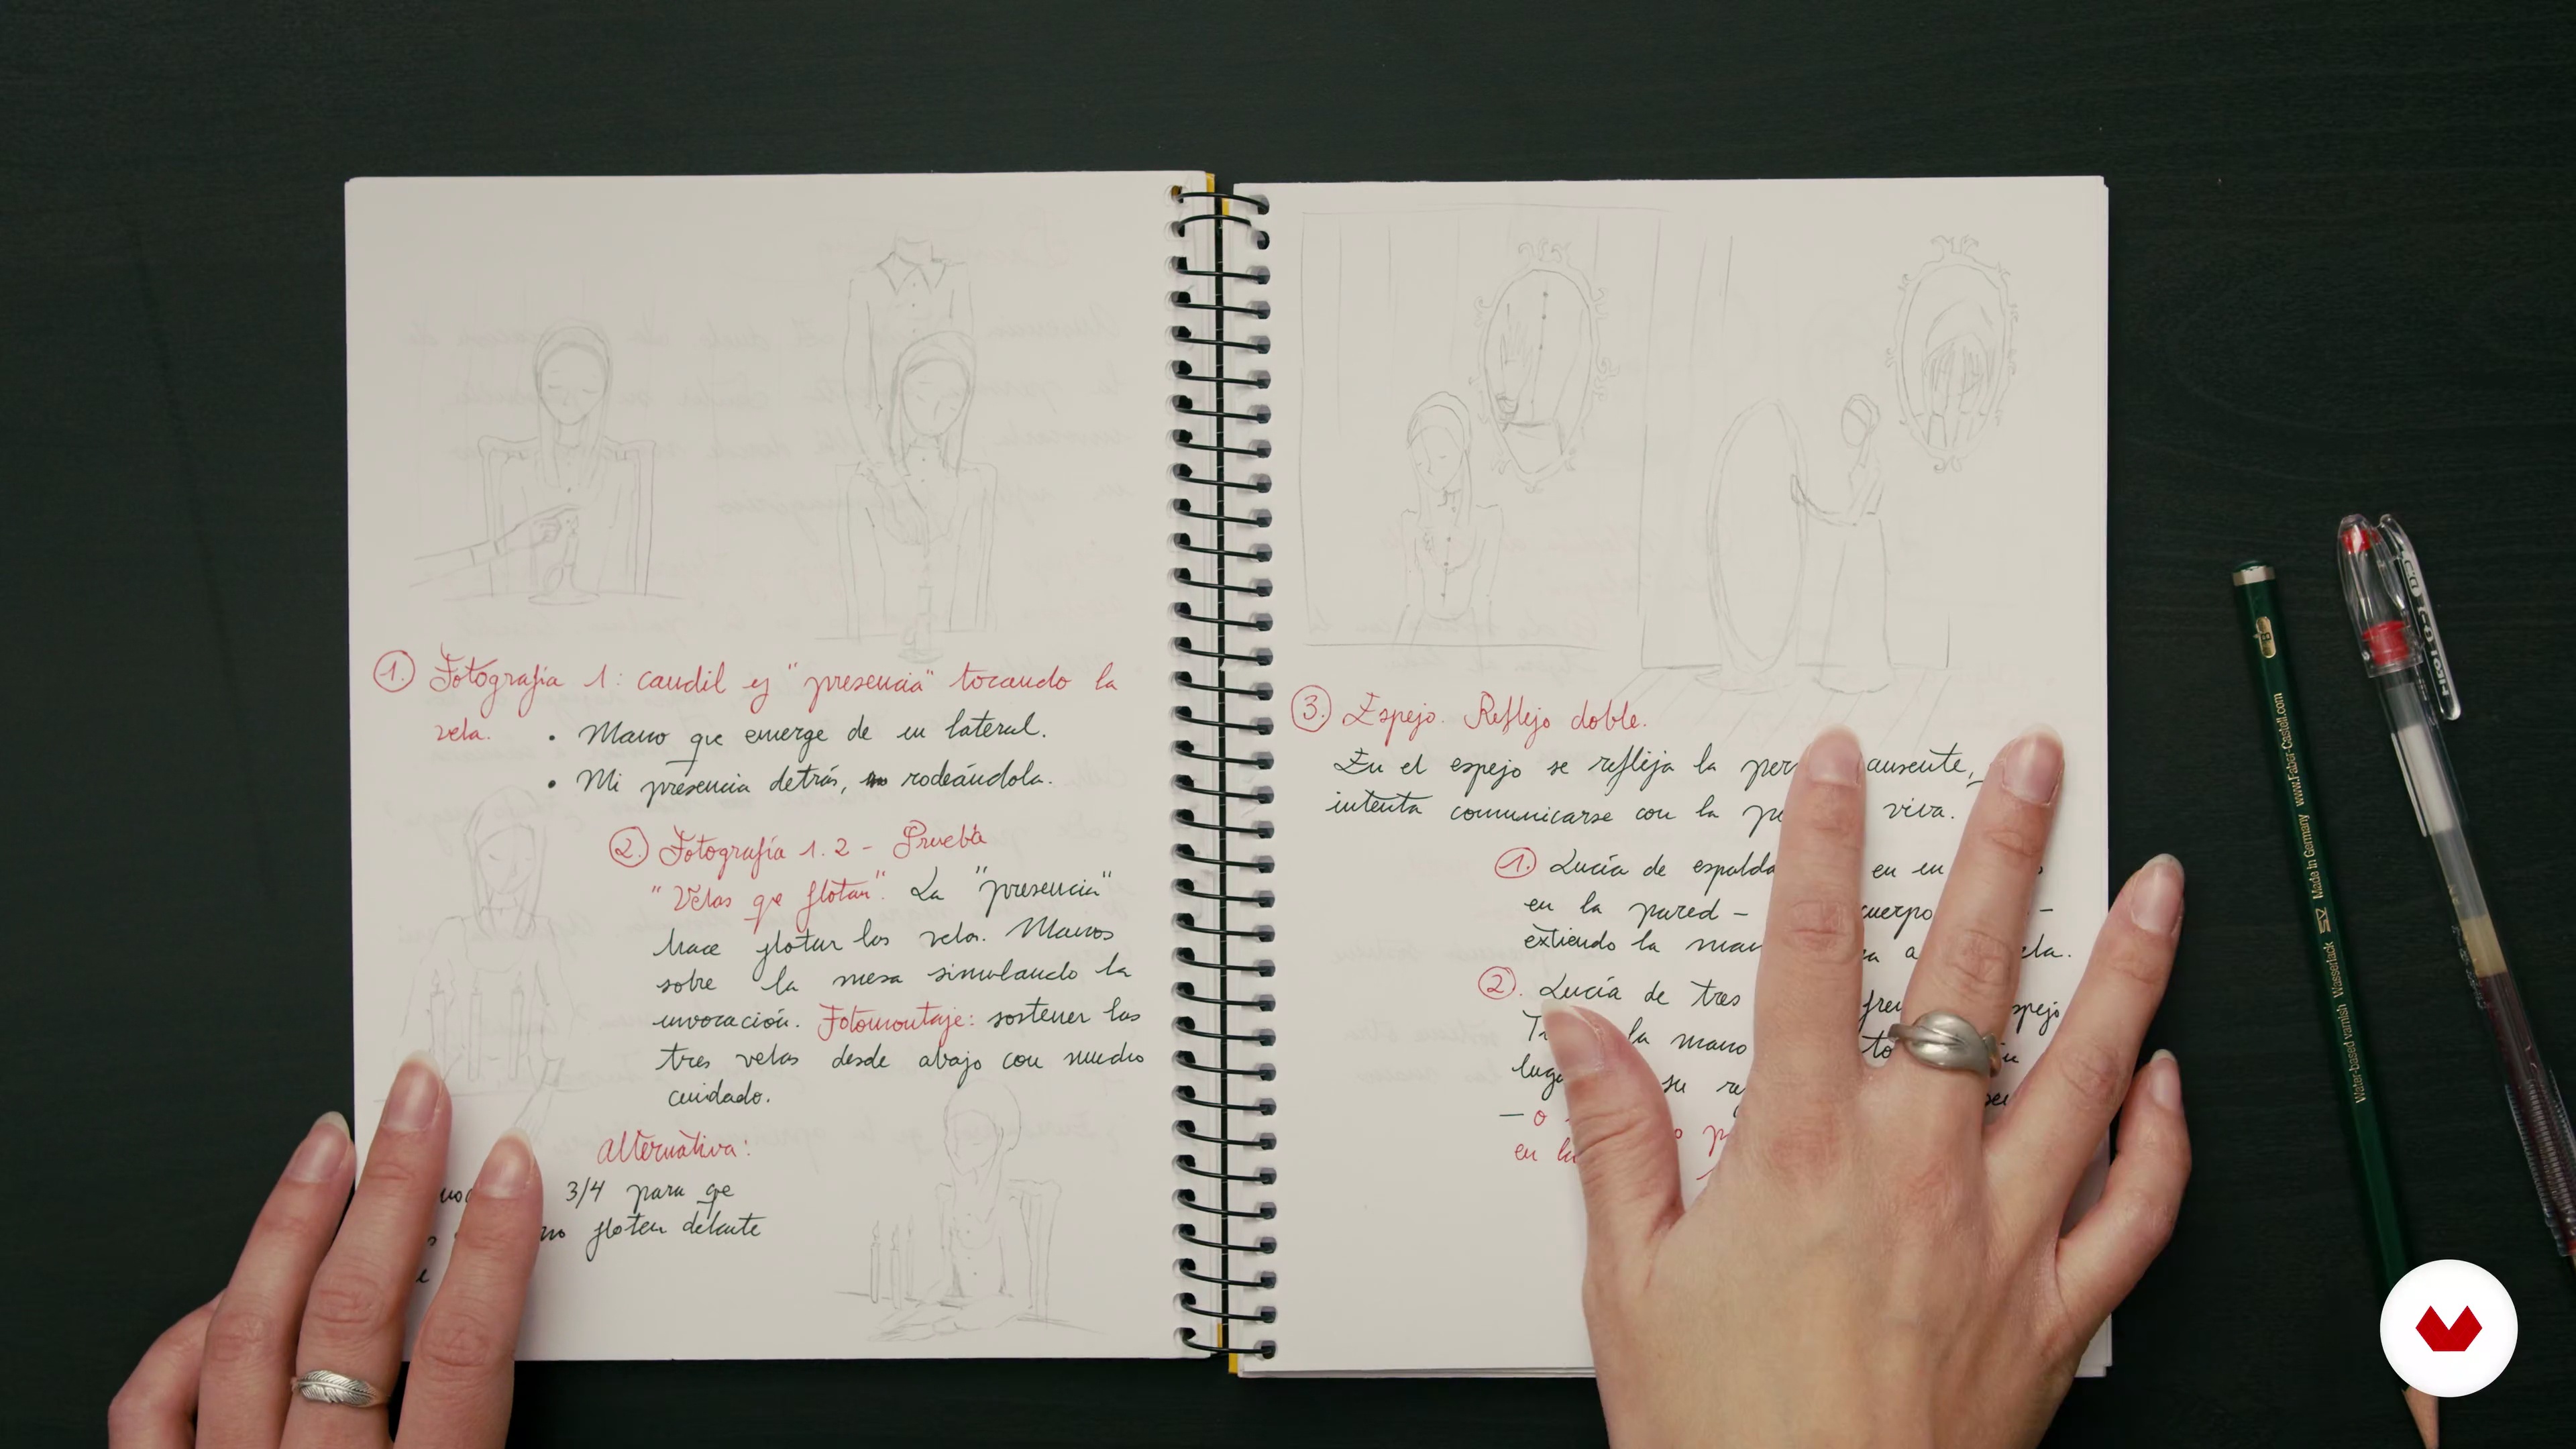 1. Fotografía 1: candil y "presencia" tocando la
vela.
• Mano que emerge de un lateral.
• Mi presencia detrás, rodeándola.
2. Fotografía 1.2 - Prueba
"Velas que flotan". La "presencia"
hace flotar las velas. Manos
sobre la mesa simulando la
invocación. Fotomontaje: sostener las
tres velas desde abajo con mucho
cuidado.
Alternativa:
3/4 para que
no floten delante
3. Espejo. Reflejo doble.
En el espejo se refleja la ausente,
intenta comunicarse con la viva.
1. Lucía de en un
en la pared - cuerpo -
extiendo la
2. Lucía de tres
la mano
su
- o
en
Water-based varnish Wasserlack SV Made in Germany www.Faber-Castell.com
B
PILOT G-1